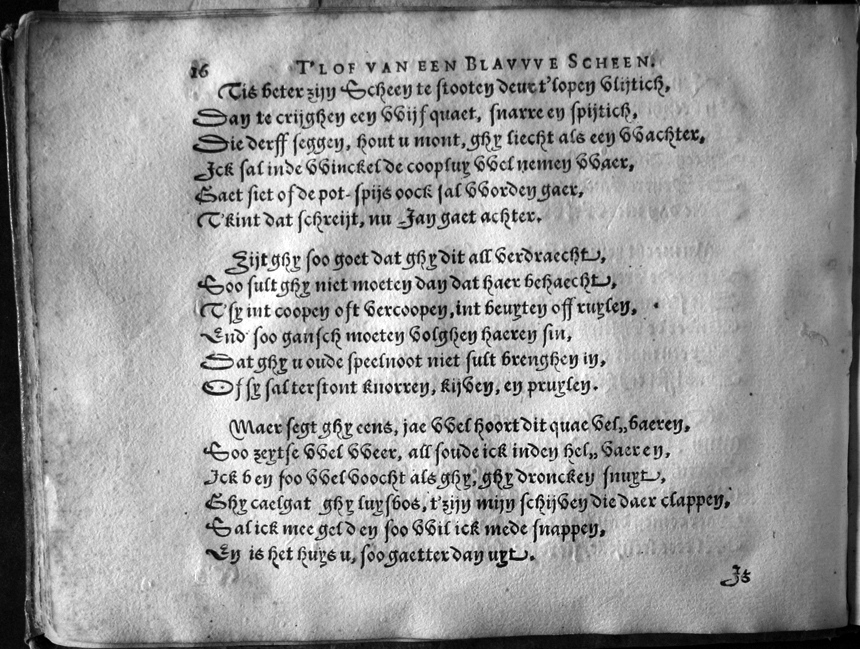 16 T'LOF VAN EEN BLAVVVE SCHEEN.
Tis beter zijn Scheen te stooten deur t'lopen vlijtich,
Dan te crijghen een VVijf quaet, snarre en spijtich,
Die derff seggen, hout u mont, ghy liecht als een VVachter,
Ick sal inde VVinckel de coopluy VVel nemen VVaer,
Gaet siet of de pot-spijs oock sal VVorden gaer,
T'kint dat schreijt, nu Jan gaet achter.
Zijt ghy soo goet dat ghy dit all verdraecht,
Soo sult ghy niet moeten dan dat haer behaecht,
T'sy int coopen oft vercoopen, int beuyten off ruylen,
End soo gansch moeten volghen haeren sin,
Dat ghy u oude speelnoot niet sult brenghen in,
Of sy sal terstont knorren, kijven, en pruylen.
Maer segt ghy eens, jae VVel hoort dit quae vel,, baeren,
Soo zeytse VVel VVeer, all soude ick inden hel,, vaeren,
Ick ben soo VVel voocht als ghy, ghy droncken snuyt,
Ghy caelgat ghy luysbos, t'zijn mijn schijven die daer clappen,
Sal ick mee gelden soo VVil ick mede snappen,
En is het huys u, soo gaetter dan uyt.
Is